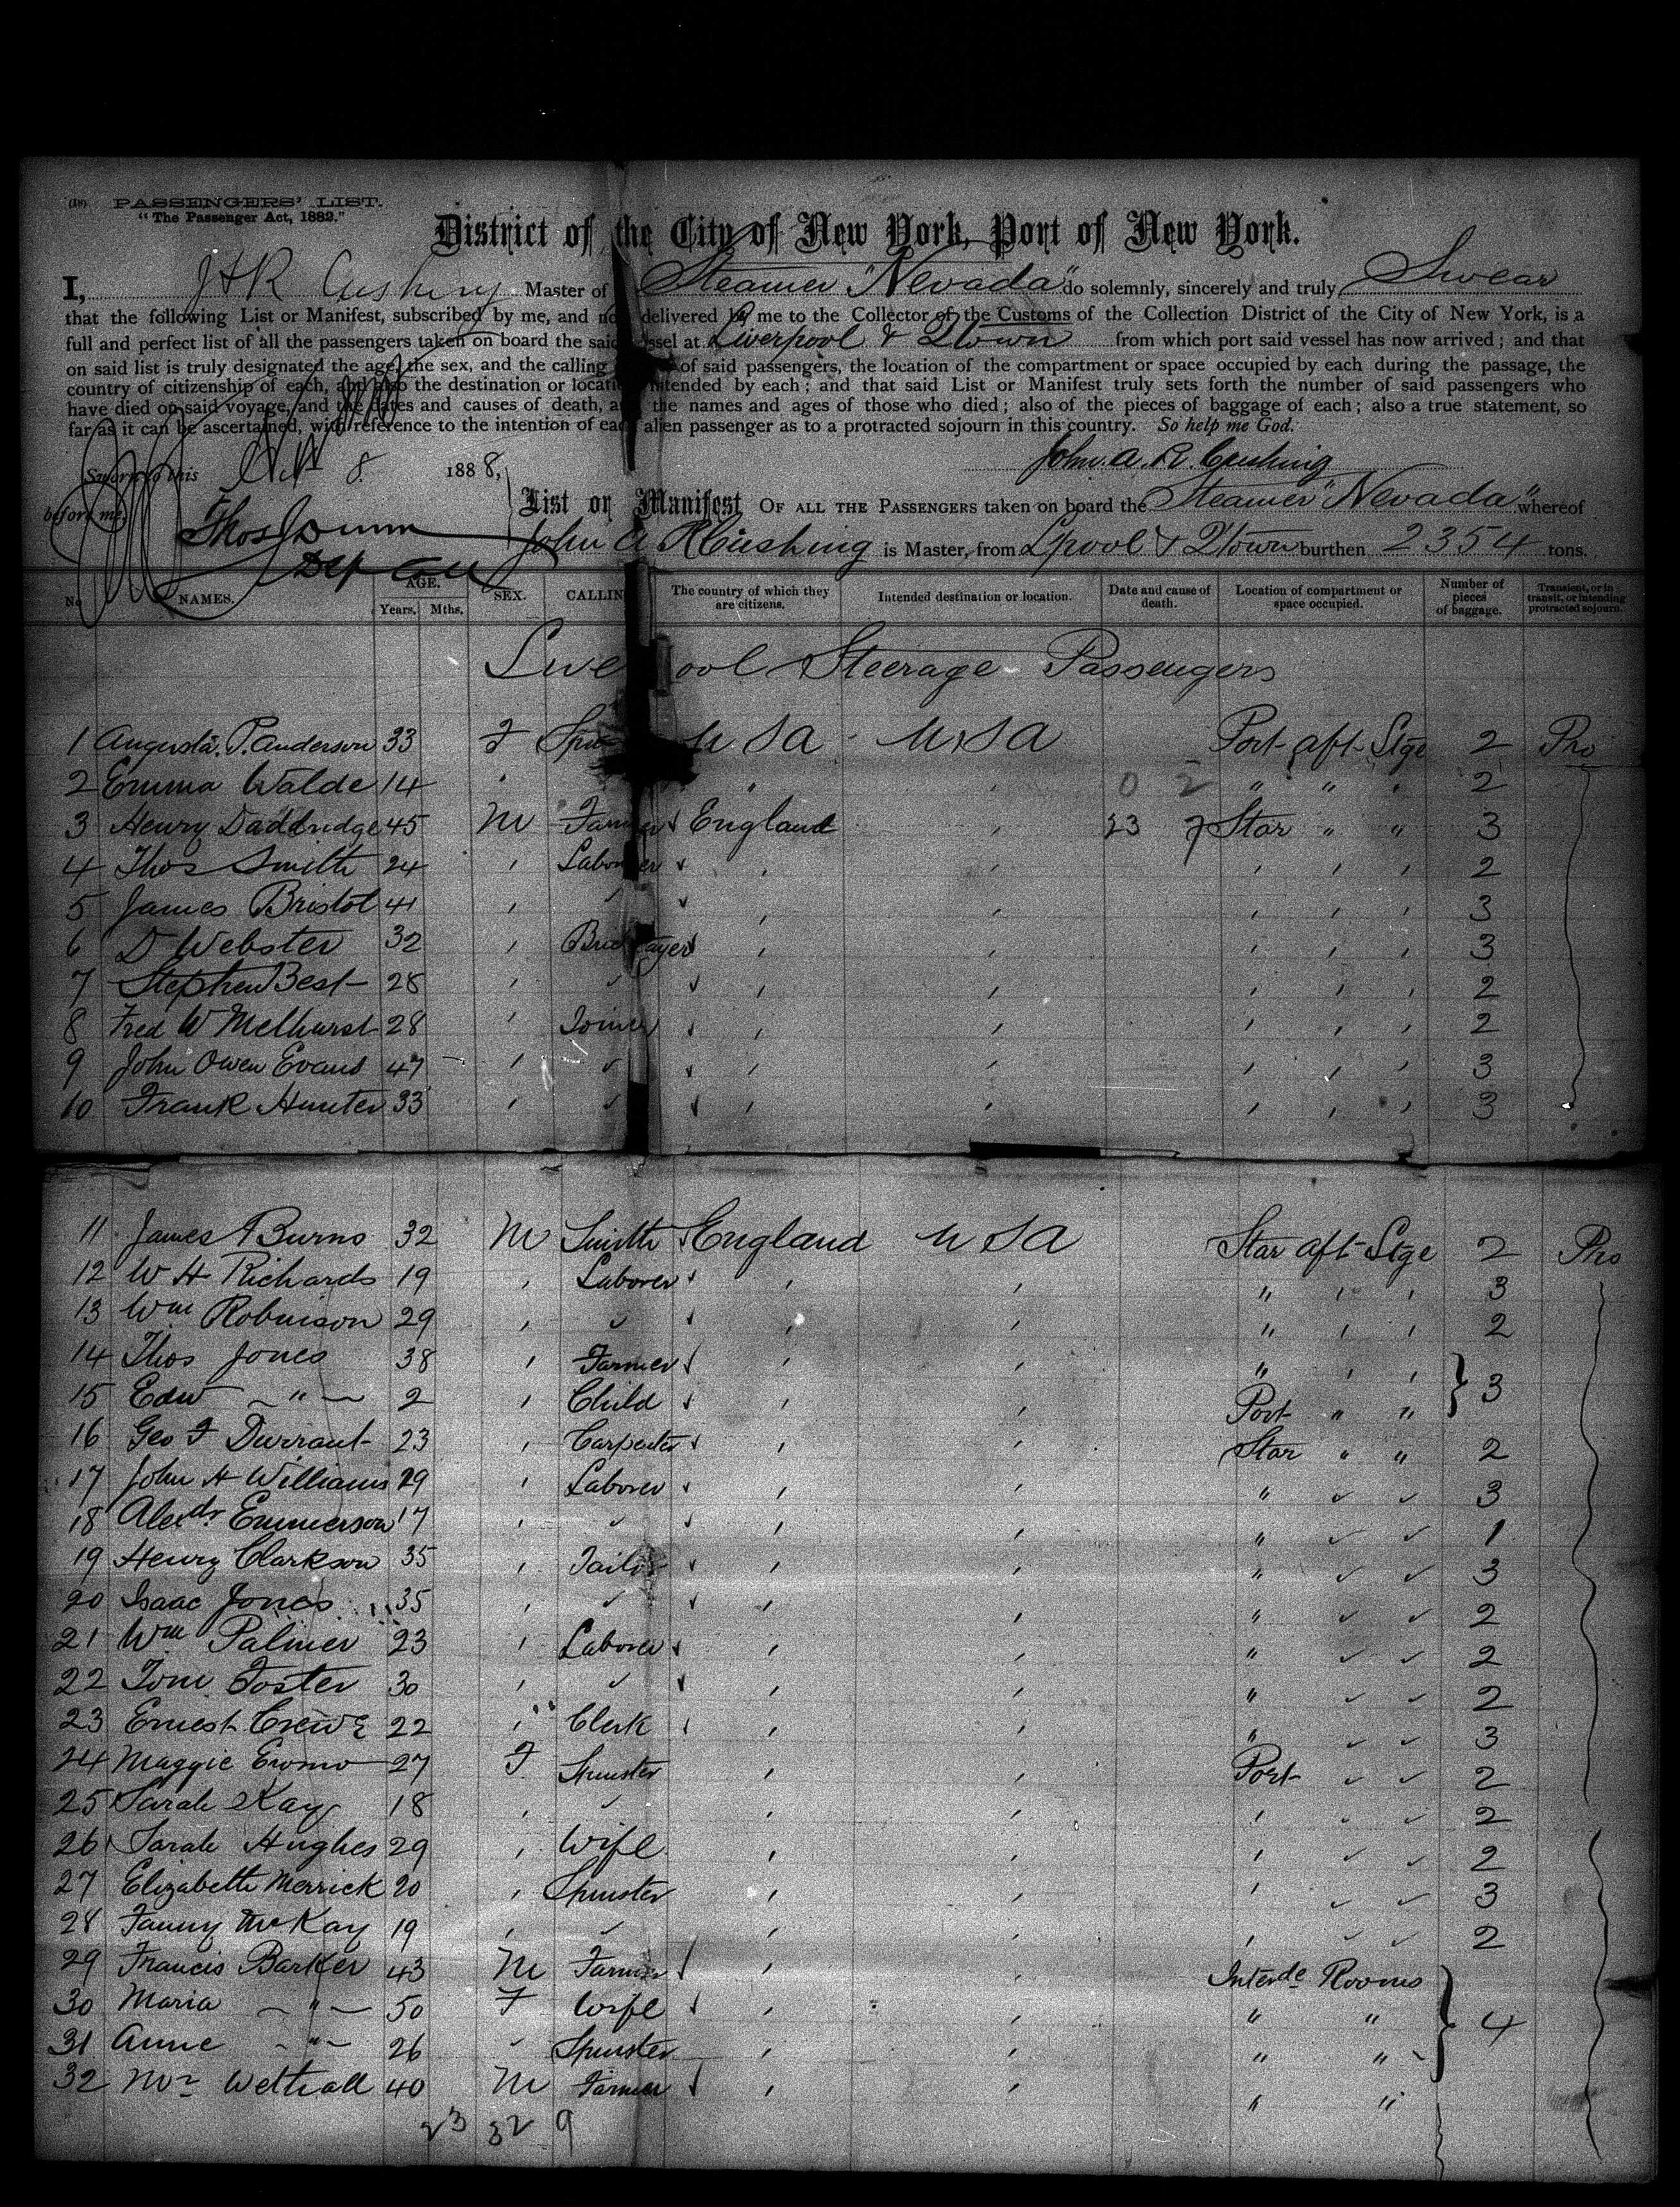 (18) PASSENGERS' LIST.
"The Passenger Act, 1882."
District of the City of New York, Port of New York.
I, J A R Cushing Master of Steamer "Nevada" do solemnly, sincerely and truly Swear
that the following List or Manifest, subscribed by me, and now delivered by me to the Collector of the Customs of the Collection District of the City of New York, is a
full and perfect list of all the passengers taken on board the said vessel at Liverpool & Qtown from which port said vessel has now arrived; and that
on said list is truly designated the age, the sex, and the calling of said passengers, the location of the compartment or space occupied by each during the passage, the
country of citizenship of each, and also the destination or location intended by each; and that said List or Manifest truly sets forth the number of said passengers who
have died on said voyage, and the dates and causes of death, and the names and ages of those who died; also of the pieces of baggage of each; also a true statement, so
far as it can be ascertained, with reference to the intention of each alien passenger as to a protracted sojourn in this country. So help me God.
Sworn to this 8. 1888, John. A. R. Cushing
before me, Thos Dunn
Dep Coll
List or Manifest OF ALL THE PASSENGERS taken on board the Steamer "Nevada" whereof
John A R Cushing is Master, from Lpool & Qtown burthen 2354 tons.
No NAMES. AGE. Years. Mths. SEX. CALLING The country of which they are citizens. Intended destination or location. Date and cause of death. Location of compartment or space occupied. Number of pieces of baggage. Transient, or in transit, or intending protracted sojourn.
Liverpool Steerage Passengers
1 Augusta. P. Anderson 33 F Spin USA USA Port aft Stge 2 Pro
2 Emma Walde 14 " " " 0 2 " " " 2
3 Henry Daddridge 45 M Farmer England " 23 7 Star " " 3
4 Thos Smith 24 " Laborer " " " " " 2
5 James Bristol 41 " " " " " " " 3
6 D Webster 32 " Bricklayer " " " " " 3
7 Stephen Best 28 " " " " " " " 2
8 Fred W Melhurst 28 " Joiner " " " " " 2
9 John Owen Evans 47 " " " " " " " 3
10 Frank Hunter 33 " " " " " " " 3
11 James Burns 32 M Smith England USA Star aft Stge 2 Pro
12 W H Richards 19 " Laborer " " " " " 3
13 Wm Robinson 29 " " " " " " " 2
14 Thos Jones 38 " Farmer " " " " " } 3
15 Edw " 2 " Child " " Port " "
16 Geo F Durrant 23 " Carpenter " " Star " " 2
17 John H Williams 29 " Laborer " " " " " 3
18 Alexdr Emmerson 17 " " " " " " " 1
19 Henry Clarkson 35 " Tailor " " " " " 3
20 Isaac Jones 35 " " " " " " " 2
21 Wm Palmer 23 " Laborer " " " " " 2
22 Tom Foster 30 " " " " " " " 2
23 Ernest Crewe 22 " Clerk " " " " " 3
24 Maggie 27 F Spinster " " Port " " 2
25 Sarah Kay 18 " " " " " " " 2
26 Sarah Hughes 29 " Wife " " " " " 2
27 Elizabeth Merrick 20 " Spinster " " " " " 3
28 Fanny McKay 19 " " " " " " " 2
29 Francis Barker 43 M Farmer " " Interde Rooms } 4
30 Maria " 50 F Wife " " " "
31 Anne " 26 " Spinster " " " "
32 Mr Wethall 40 M Farmer " " " "
23 32 9